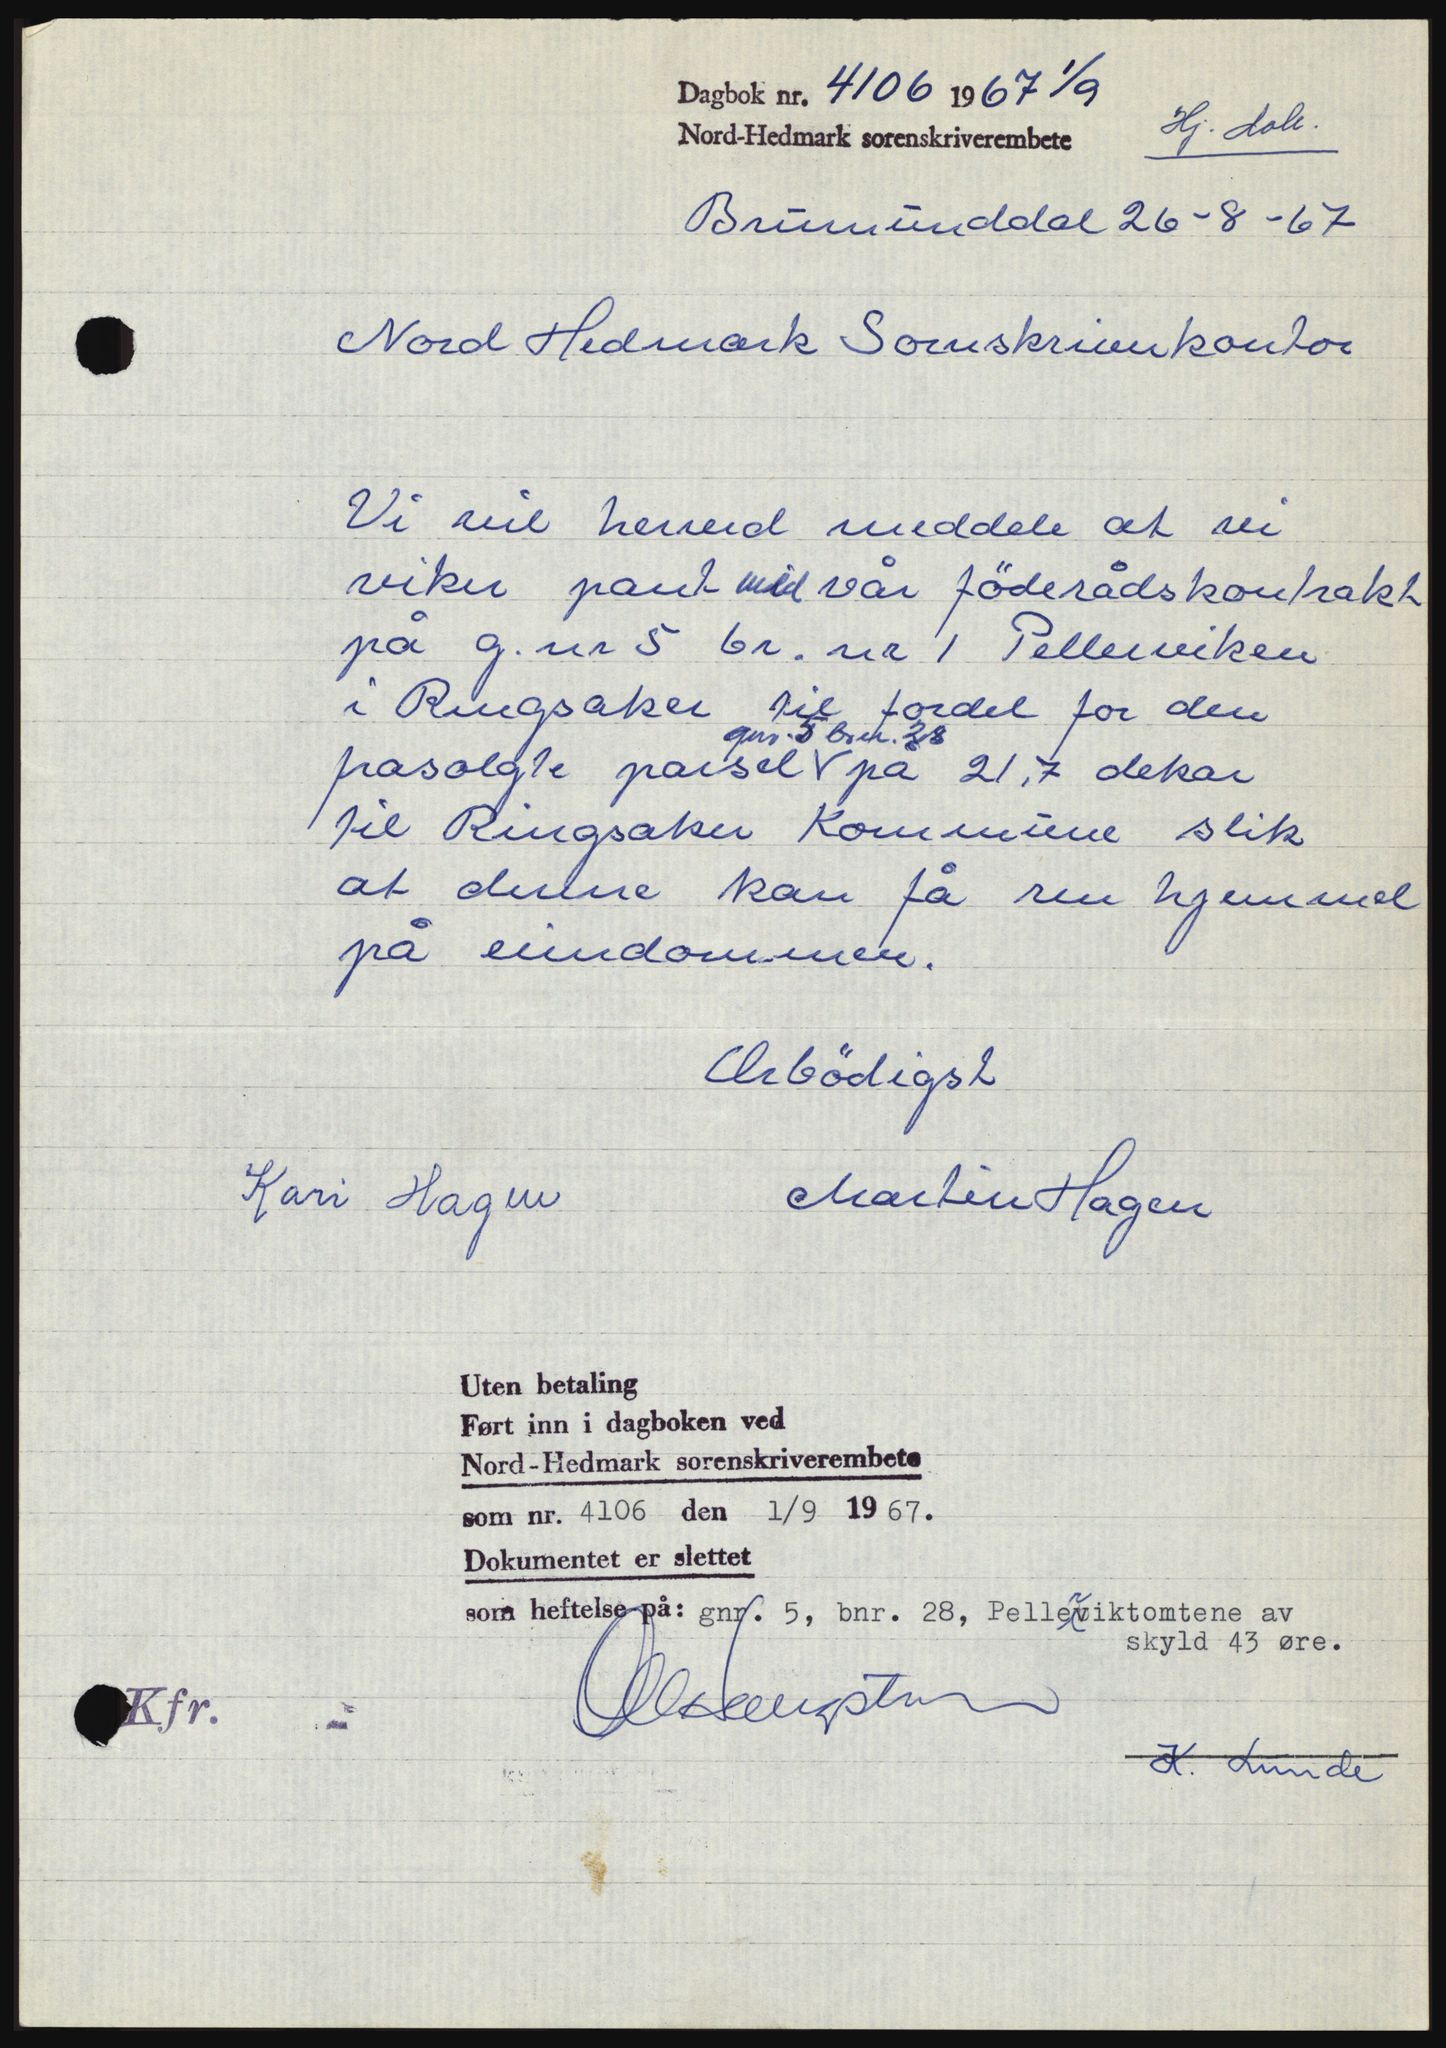 Dagbok nr. 4106 1967 1/9
Nord-Hedmark sorenskriverembete
Hj. dok.
Brumunddal 26-8-67
Nord Hedmark Sorenskriverkontor
Vi vil herved meddele at vi
viker pant med vår föderådskontrakt
på g.nr 5 br.nr 1 Pellerviken
i Ringsaker til fordel for den
gnr. 5 bnr. 28
frasolgte parsel √ på 21,7 dekar
til Ringsaker Kommune slik
at denne kan få ren hjemmel
på eiendommen.
Ærbödigst
Kari Hagen Martin Hagen
Uten betaling
Ført inn i dagboken ved
Nord-Hedmark sorenskriverembete
som nr. 4106 den 1/9 1967.
Dokumentet er slettet
som heftelse på: gnr. 5, bnr. 28, Pellerviktomtene av
skyld 43 øre.
Kfr.
K. Lunde